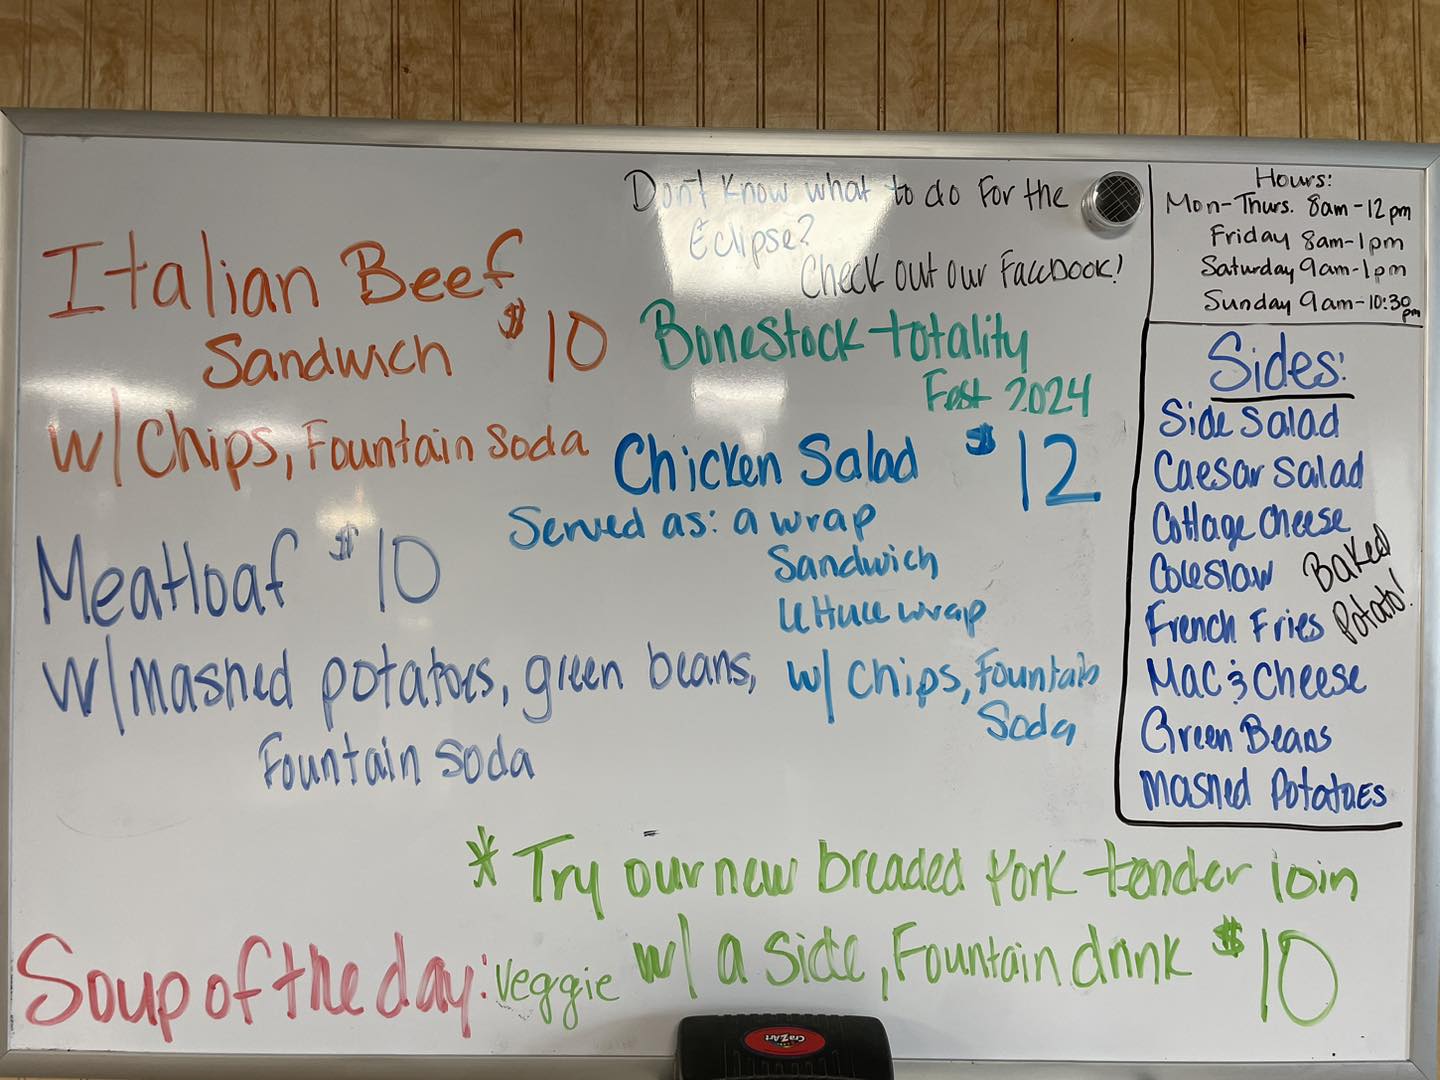 Don't Know what to do For the
Eclipse?
Check out our Facebook!
Bonestock totality
Fest 2024
Italian Beef
Sandwich $10
w/ Chips, Fountain Soda
Chicken Salad $12
Served as: a wrap
Sandwich
lettuce wrap
w/ Chips, Fountain
Soda
Meatloaf $10
w/ mashed potatoes, green beans,
Fountain Soda
Hours:
Mon-Thurs. 8am-12pm
Friday 8am-1pm
Saturday 9am-1pm
Sunday 9am-10:30pm
Sides:
Side Salad
Caesar Salad
Cottage Cheese
Coleslaw
French Fries
Baked
Potato!
Mac & Cheese
Green Beans
Mashed Potatoes
* Try our new breaded Pork tender loin
w/ a side, Fountain drink $10
Soup of the day: Veggie
Cra-Z-Art